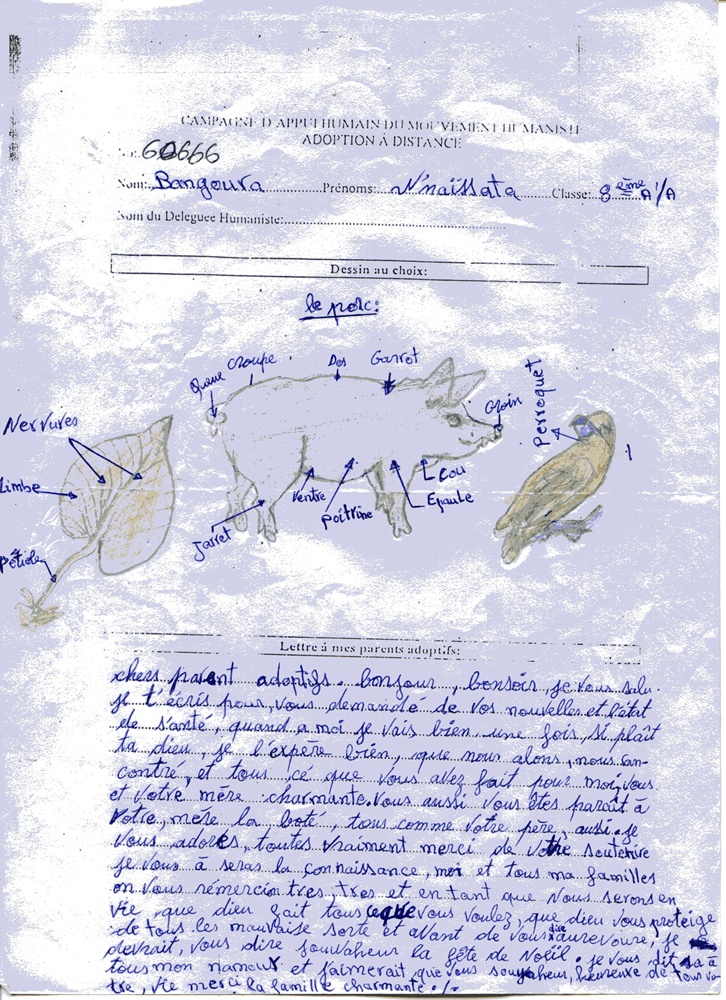 CAMPAGNE D'APPUI HUMAIN DU MOUVEMENT HUMANISTE
ADOPTION À DISTANCE
No: 60666
Nom: Bangoura Prénoms: N'naïssata Classe: 8ème A'/A
Nom du Deleguee Humaniste:
Dessin au choix:
le porc:
Queue
Croupe
Dos
Garrot
Groin
Perroquet
Nervures
Limbe
Pétiole
Jarret
Ventre
Poitrine
Epaule
Cou
Lettre á mes parents adoptifs:
chers parent adoptifs. bonjour, bensoir, je vous salu.
je t'ecris pour vous demandé de vos nouvelles et l'état
de s'anté, quand a moi je vais bien une fois, si plaît
ta dieu, je l'expère bien, que nous alons, nous ran-
contré, et tous cé que vous avez fait pour moi, vous
et votre mère charmante. Vous aussi vous êtes paraît à
votre mere la boté, tous comme votre père, aussi. je
vous adores, toutes vraiment merci de votre soutenire
je vous à seras la connaissance, moi et tous ma familles
on vous rémercion tres, tres et en tant que nous serons en
vie, que dieu fait tous ce que vous voulez, que dieu vous proteige
de tous les mauvaise sorte et avant de vous dire aurevoure, je
devrait, vous dire souvaheur la fête de Noëil. je vous dit sa à
tous mon namour et j'aimerait que vous souyaheur, heureuxe de tous vo-
tre, vie merci la famille charmante ./.